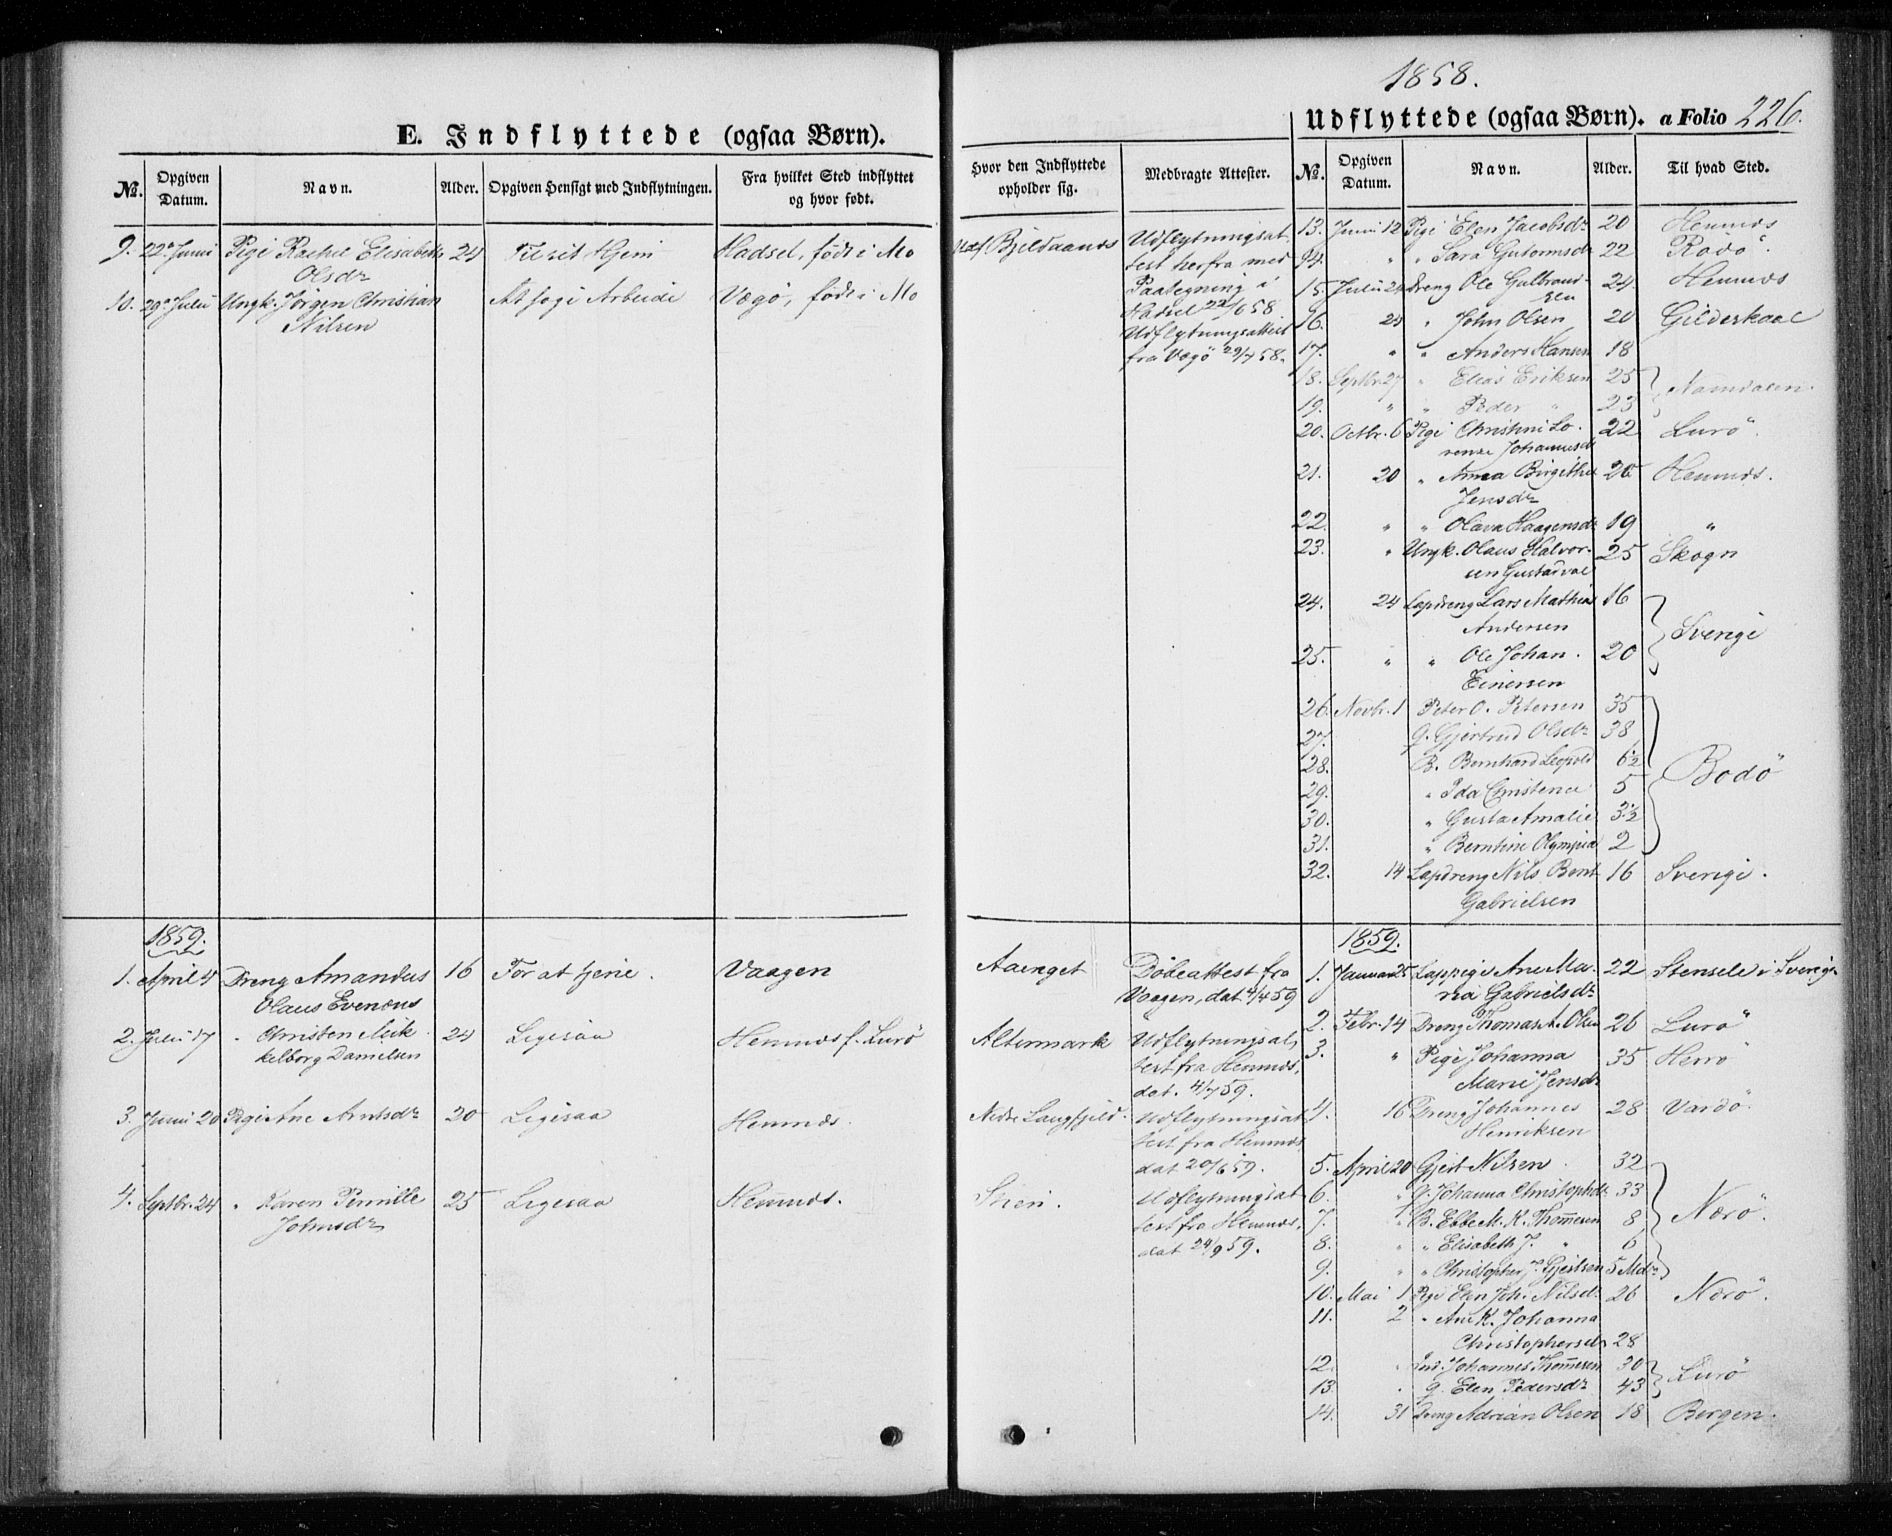 1858.
E. Indflyttede (ogsaa Børn).
No. Opgiven Datum. Navn. Alder. Opgiven Hensigt med Indflytningen. Fra hvilket Sted indflyttet og hvor født.
9. 22de Juni Pige Rachel Elisabeth 24 Til sit Hjem Hadsel, født i Mo
Olsdr
10. 29de Juli Ungk. Jörgen Christian At söge Arbeide Vægö, födt i Mo
Nilsen
1859.
1. April 4 Dreng Amandus 16 For at tjene. Vaagen
Olaus Evensen
2. Juli 17 " Christen Mik 24 Ligesaa Hemnæs f. Lurö
kelborg Danielsen
3. Juni 20 Pige Ane Arntsdr 20 Ligesaa Hemnæs.
4. Septbr. 24 " Karen Pernille 25 Ligesaa Hemnæs.
Johnsdr
Hvor den Indflyttede opholder sig. Medbragte Attester.
Bjeldaanæs Udflytningsat
test herfra med
Paategning i
Hadsel 22/6 58
Udflytningsattest
fra Vægö 29/7 58.
Aaenget Döbeattest fra
Vaagen, dat. 4/4 59
Altermark Udflytningsat
test fra Hemnæs,
dat. 4/7 59.
Nedre Langfjeld. Udflytningsat
test fra Hemnæs,
dat 20/6 59.
Udflytningsat
test fra Hemnæs,
dat 24/9 59.
Udflyttede (ogsaa Børn). a Folio 226.
No. Opgiven Datum. Navn. Alder. Til hvad Sted.
13. Juni 12 Pige Elen Jacobsdr 20 Hemnæs
14. " " Sara Guttormsdr 22 Rödö.
15 Juli 24 Dreng Ole Gulbrand- 24 Hemnæs
sen
16. 25 " John Olsen 20 Gildeskaal
17. " " Anders Hansen 18
18. Septbr. 27 " Elias Eriksen 25 Namdalen.
19. " " Peder " 23
20. Octbr. 6 Pige Christine Lo- 22 Lurö.
renze Johannesdr
21. 20 " Anna Birgithe 20 Hemnæs.
Jensdr
22. " " Olava Haagensdr 19 "
23. " Ungk. Olaus Halvor- 25 Skogn
sen Gustadval
24. 24 Lapdreng Lars Mathias 16 Sverige
Andersen
25. " " Ole Johan 20
Einersen
26. Novbr. 1 Peter O. Petersen 35 Bodö
27. G. Gjertrud Olsdr 38
28. B. Bernhard Leopold 6½
29. " Ida Christence 5
30. " Gusta Amalie 3½
31. " Berntine Olympia 2
32. 14 Lapdreng Nils Bent 16 Sverige.
Gabrielsen
1859.
1. Januar 25 Lappige Ane Ma- 22 Stensele i Sverige
ria Gabrielsdr
2. Febr. 14 Dreng Thomas A. Olsen 26 Lurö
3. " Pige Johanna 35 Herrö
Marie Jensdr
4. 16 Dreng Johannes 28 Vardö.
Henriksen
5. April 20 Gjert Nilsen 32 Nærö.
6. " G. Johanna Christophdr 33
7. " B. Ebbe M. K. Thomesen 8
8. " " Elisabeth J. " 6
9. " " Christopher J. Gjertsen 5 Mdr
10. Mai 1 Pige Elen Joh. Nilsdr 26 Nærö.
11. 2 " Ane K. Johanna
Christophersdr 28
12. Johannes Thomesen 30 Lurö
13. " g. Elen Pedersdr 43
14. 31 Dreng Adrian Olsen 18 Bergen.